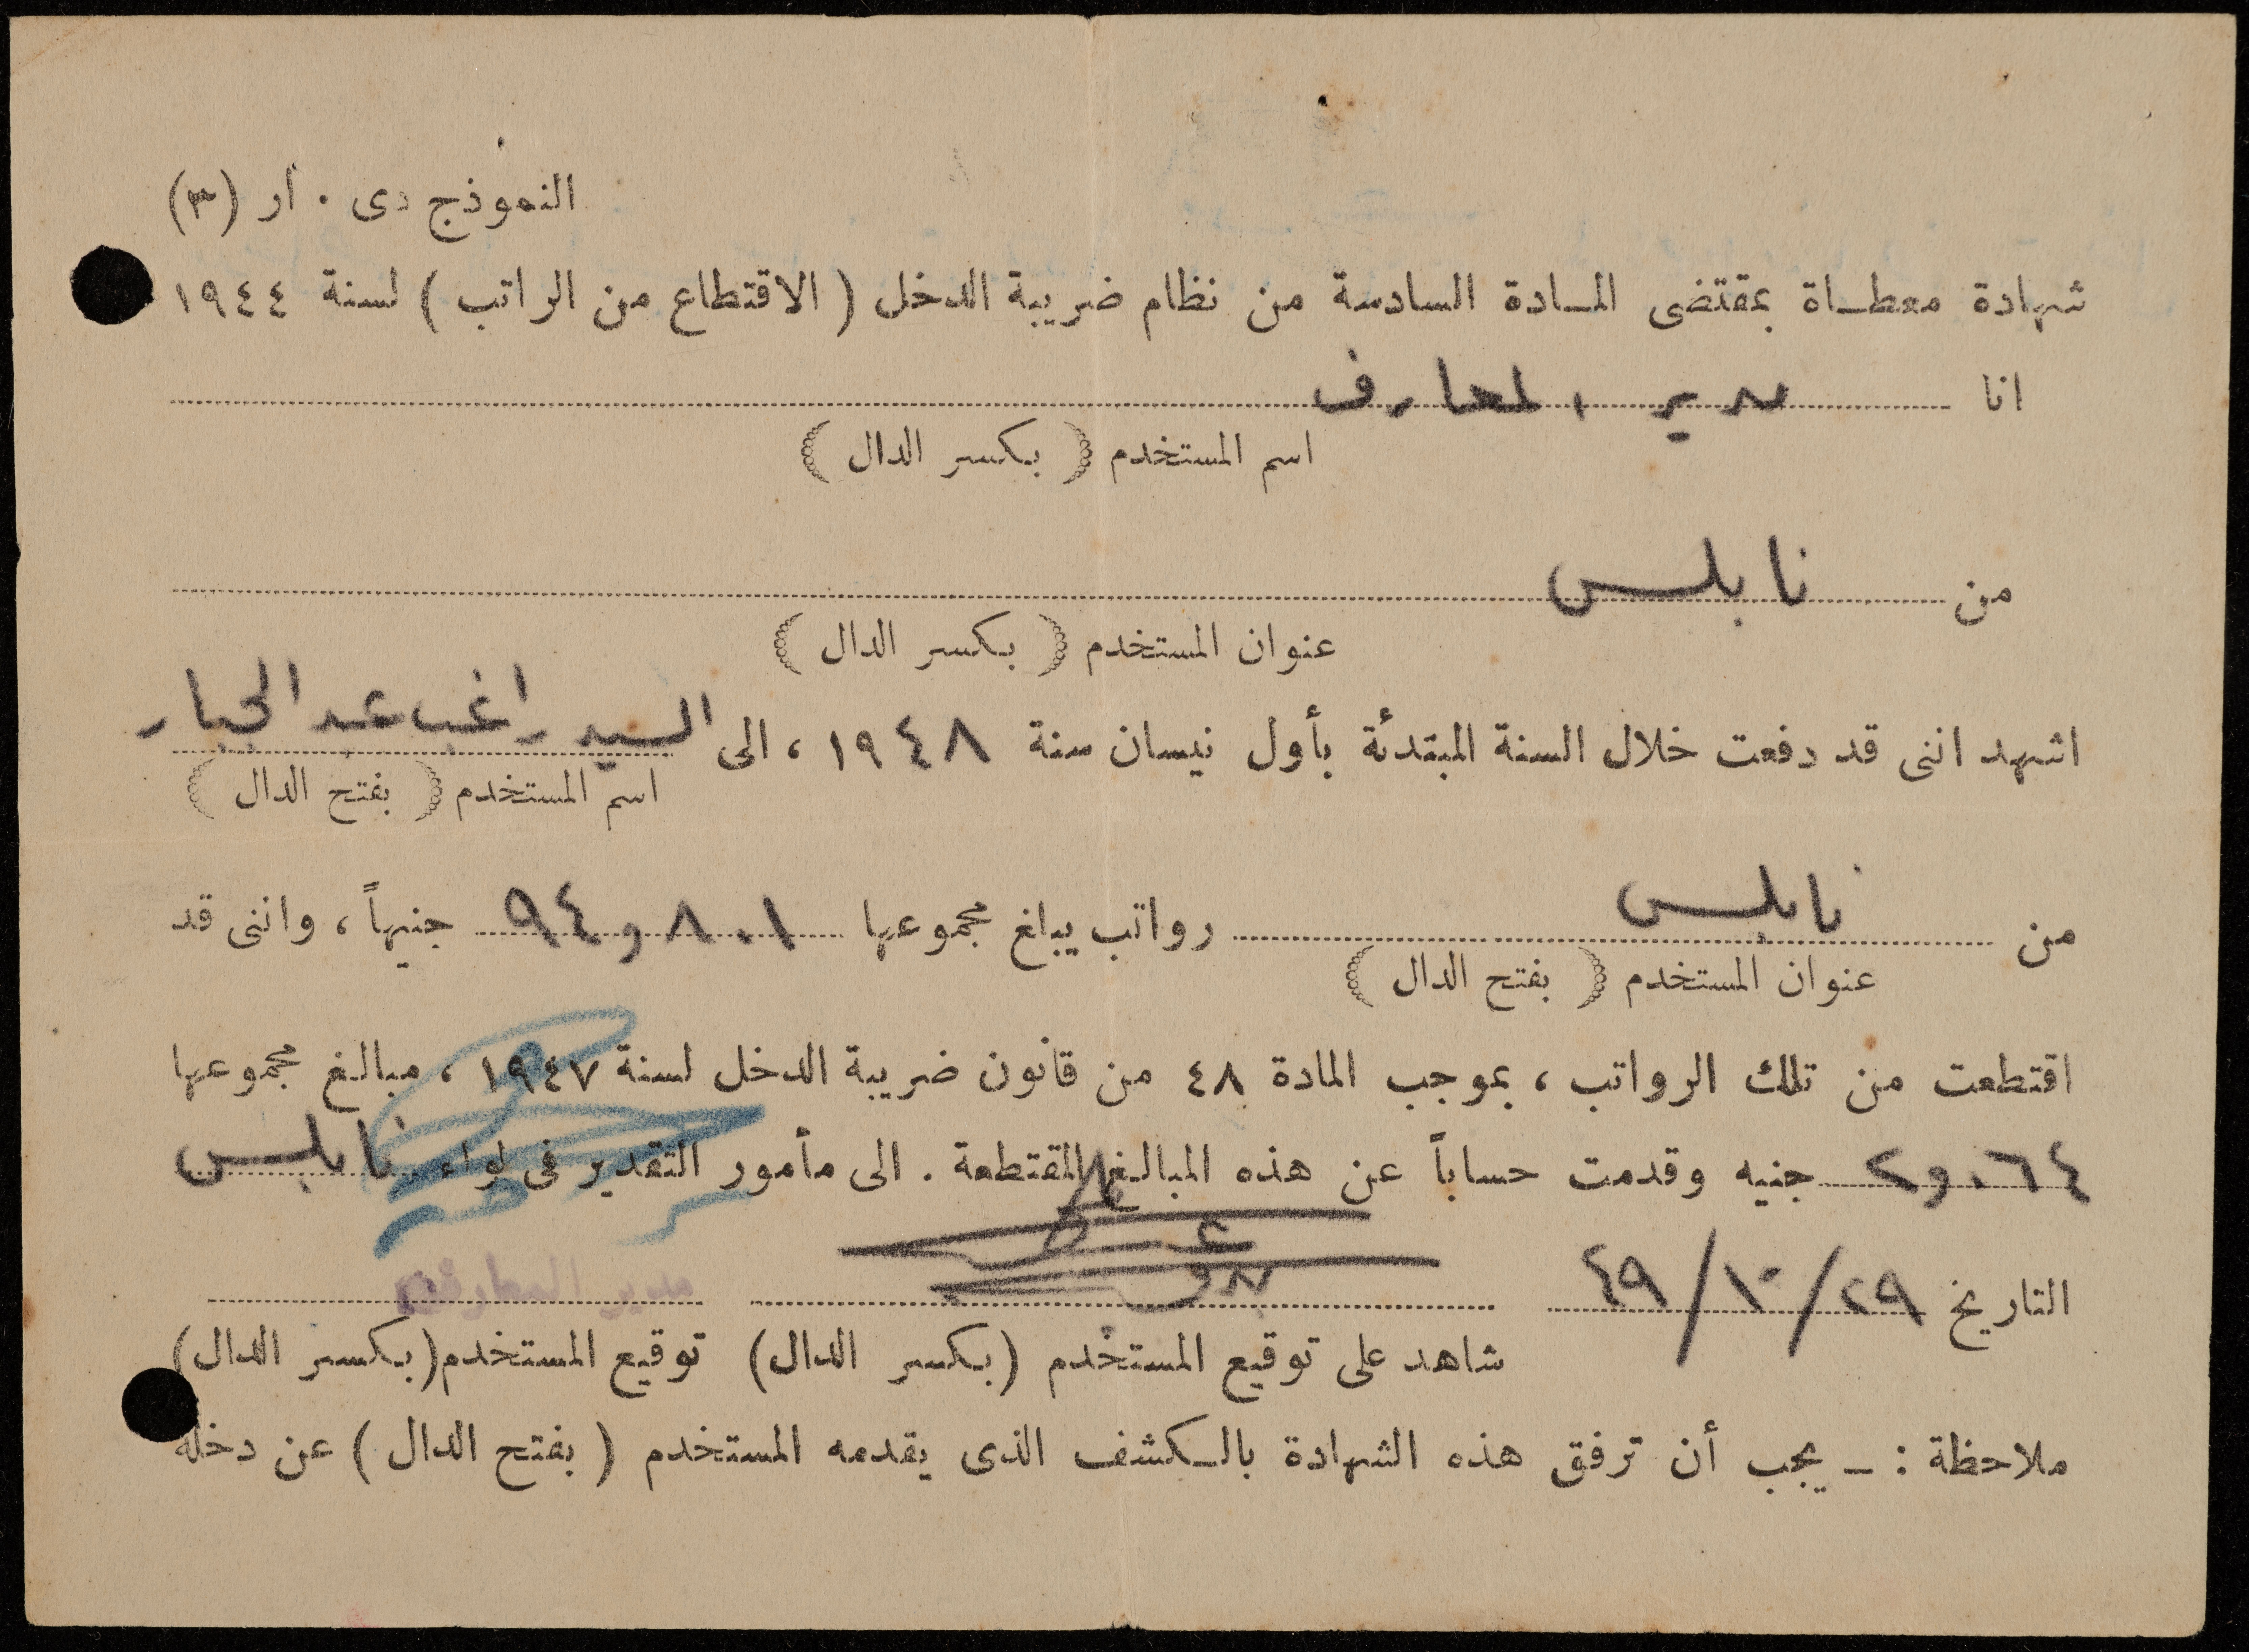 النموذج دى . أر (٣)
شهادة معطاة بمقتضى المادة السادسة من نظام ضريبة الدخل ( الاقتطاع من الراتب ) لسنة ١٩٤٤
انا مدير المعارف
اسم المستخدم ( بكسر الدال )
من نابلس
عنوان المستخدم ( بكسر الدال )
اشهد اننى قد دفعت خلال السنة المبتدئة بأول نيسان سنة ١٩٤٨ ، الى السيد راغب عبد الجبار
اسم المستخدم ( بفتح الدال )
من نابلس رواتب يبلغ مجموعها ٩٤و٨٠١ جنيهاً ، واننى قد
عنوان المستخدم ( بفتح الدال )
اقتطعت من تلك الرواتب ، بموجب المادة ٤٨ من قانون ضريبة الدخل لسنة ١٩٤٧ ، مبالغ مجموعها
٢و٠٦٤ جنيه وقدمت حساباً عن هذه المبالغ المقتطعة . الى مأمور التقدير فى لواء نابلس
التاريخ ٢٩/١٠/٤٩ مدير المعارف
شاهد على توقيع المستخدم (بكسر الدال) توقيع المستخدم (بكسر الدال)
ملاحظة : ـ يجب أن ترفق هذه الشهادة بالكشف الذى يقدمه المستخدم ( بفتح الدال ) عن دخله